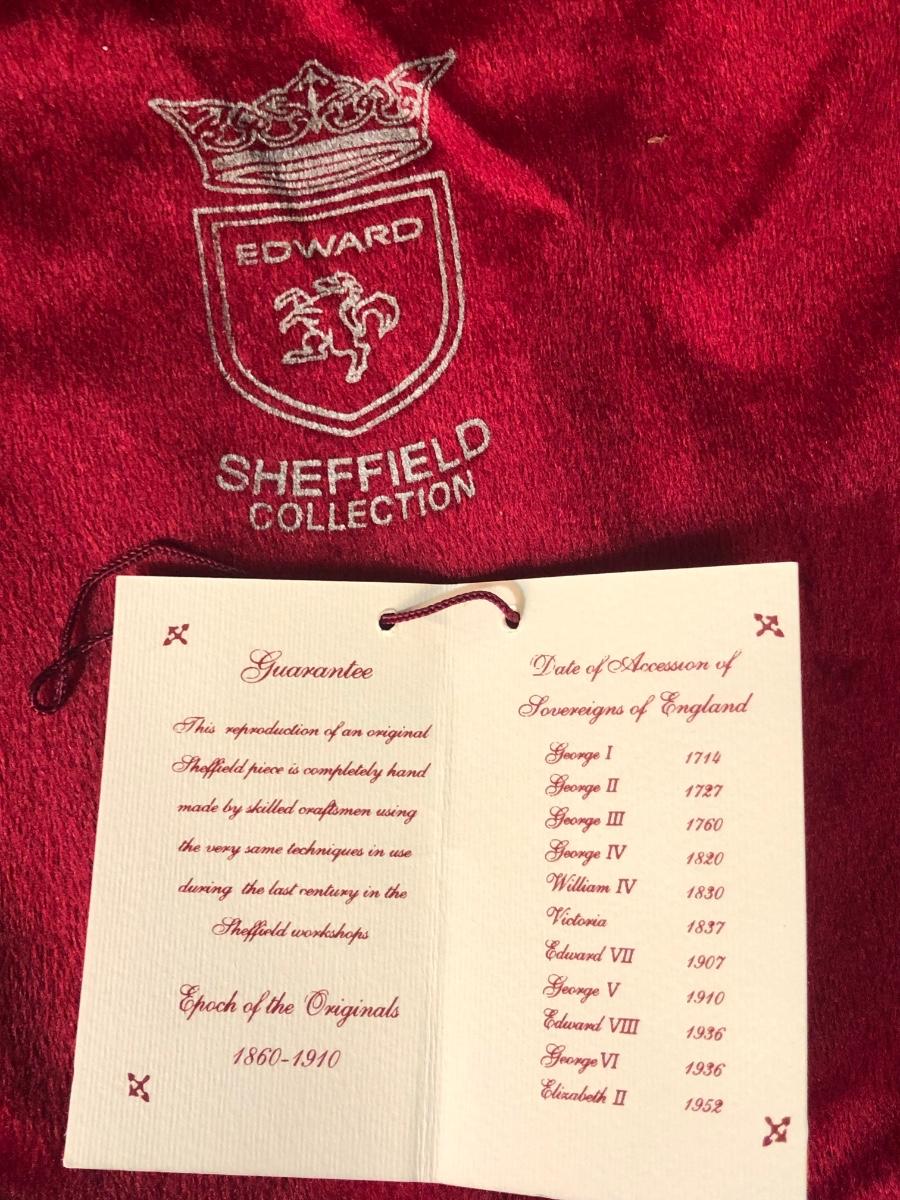 EDWARD
SHEFFIELD
COLLECTION
Guarantee
This reproduction of an original
Sheffield piece is completely hand
made by skilled craftsmen using
the very same techniques in use
during the last century in the
Sheffield workshops
Epoch of the Originals
1860-1910
Date of Accession of
Sovereigns of England
George I 1714
George II 1727
George III 1760
George IV 1820
William IV 1830
Victoria 1837
Edward VII 1907
George V 1910
Edward VIII 1936
George VI 1936
Elizabeth II 1952